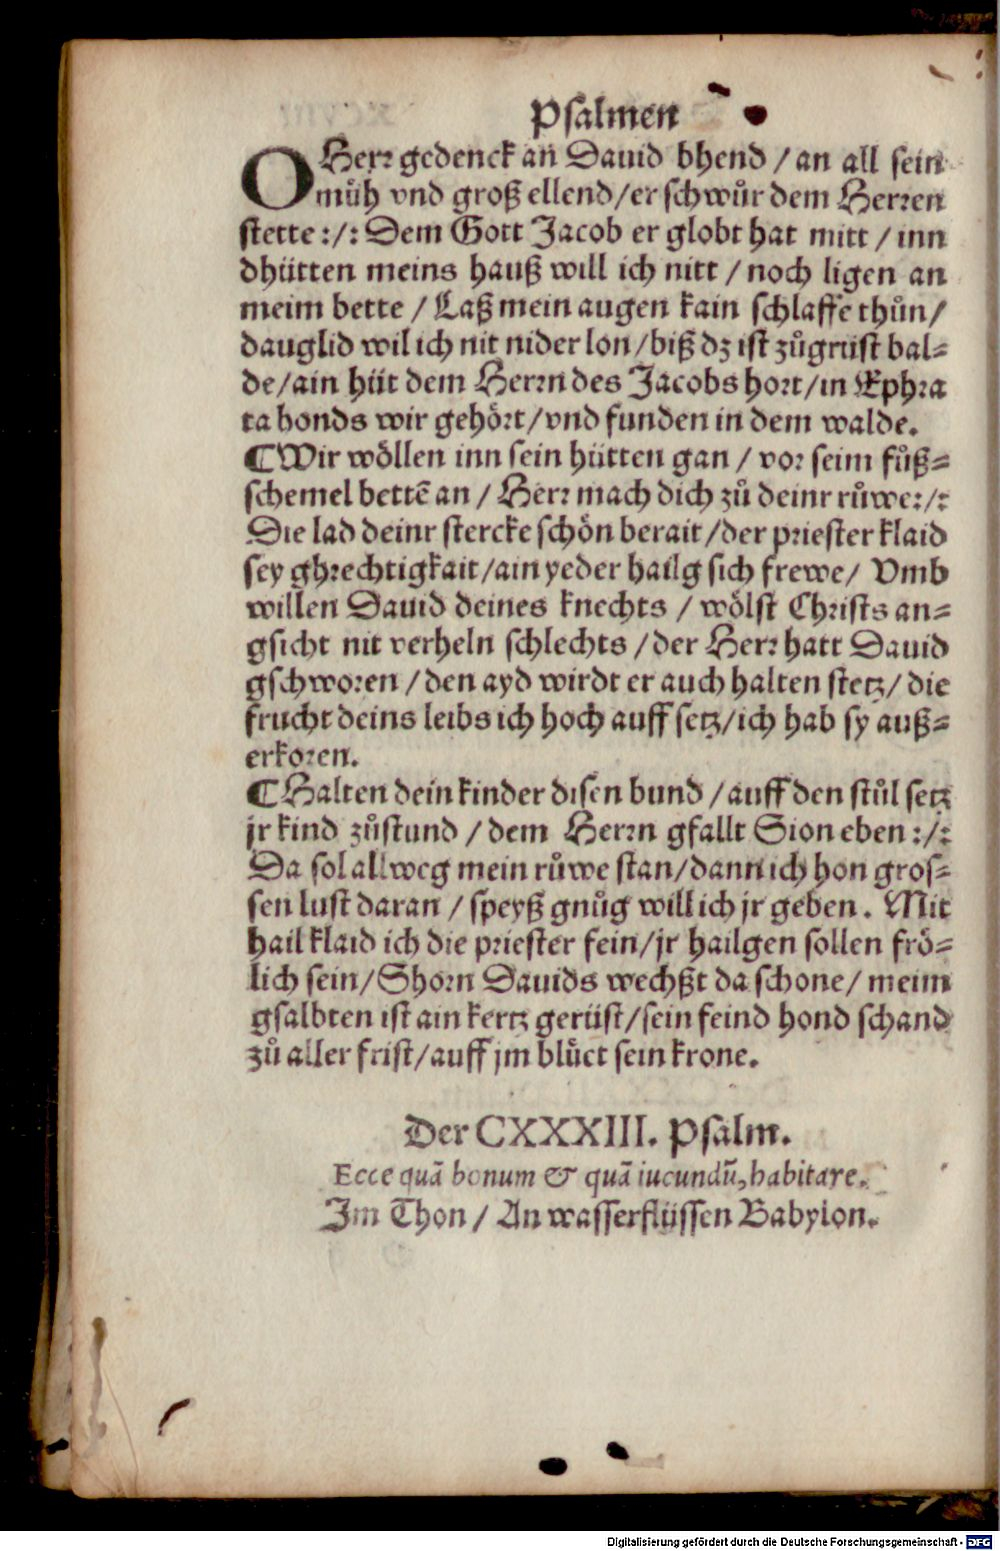 Psalmen
O Herr gedenck an Dauid bhend / an all sein
müh vnd groß ellend/er schwůr dem Herren
stette :/: Dem Gott Jacob er globt hat mitt / inn
dhütten meins hauß will ich nitt / noch ligen an
meim bette / Laß mein augen kain schlaffe thůn/
dauglid wil ich nit nider lon/biß dz ist zůgrüst bal⸗
de/ain hüt dem Herrn des Jacobs hort/in Ephra
ta honds wir gehört/vnd funden in dem walde.
¶Wir wöllen inn sein hütten gan / vor seim fůß⸗
schemel bettē an / Herr mach dich zů deinr růwe:/:
Die lad deinr stercke schön berait/der priester klaid
sey ghrechtigkait/ain yeder hailg sich frewe/ Vmb
willen Dauid deines knechts / wölst Christs an⸗
gsicht nit verheln schlechts /der Herr hatt Dauid
gschworen /den ayd wirdt er auch halten stetz/ die
frucht deins leibs ich hoch auff setz/ich hab sy auß⸗
erkoren.
¶Halten dein kinder disen bund /auff den stůl setz
jr kind zůstund /dem Herrn gfallt Sion eben :/:
Da sol allweg mein růwe stan/dann ich hon gros⸗
sen lust daran / speyß gnůg will ich jr geben. Mit
hail klaid ich die priester fein/jr hailgen sollen frö⸗
lich sein/Shorn Dauids wechßt da schone/ meim
gsalbten ist ain kertz gerüst/sein feind hond schand
zů aller frist/auff jm blüet sein krone.
Der CXXXIII. Psalm.
Ecce quā bonum & quā iucundū, habitare.
Im Thon / An wasserflüssen Babylon.
Digitalisierung gefördert durch die Deutsche Forschungsgemeinschaft - DFG